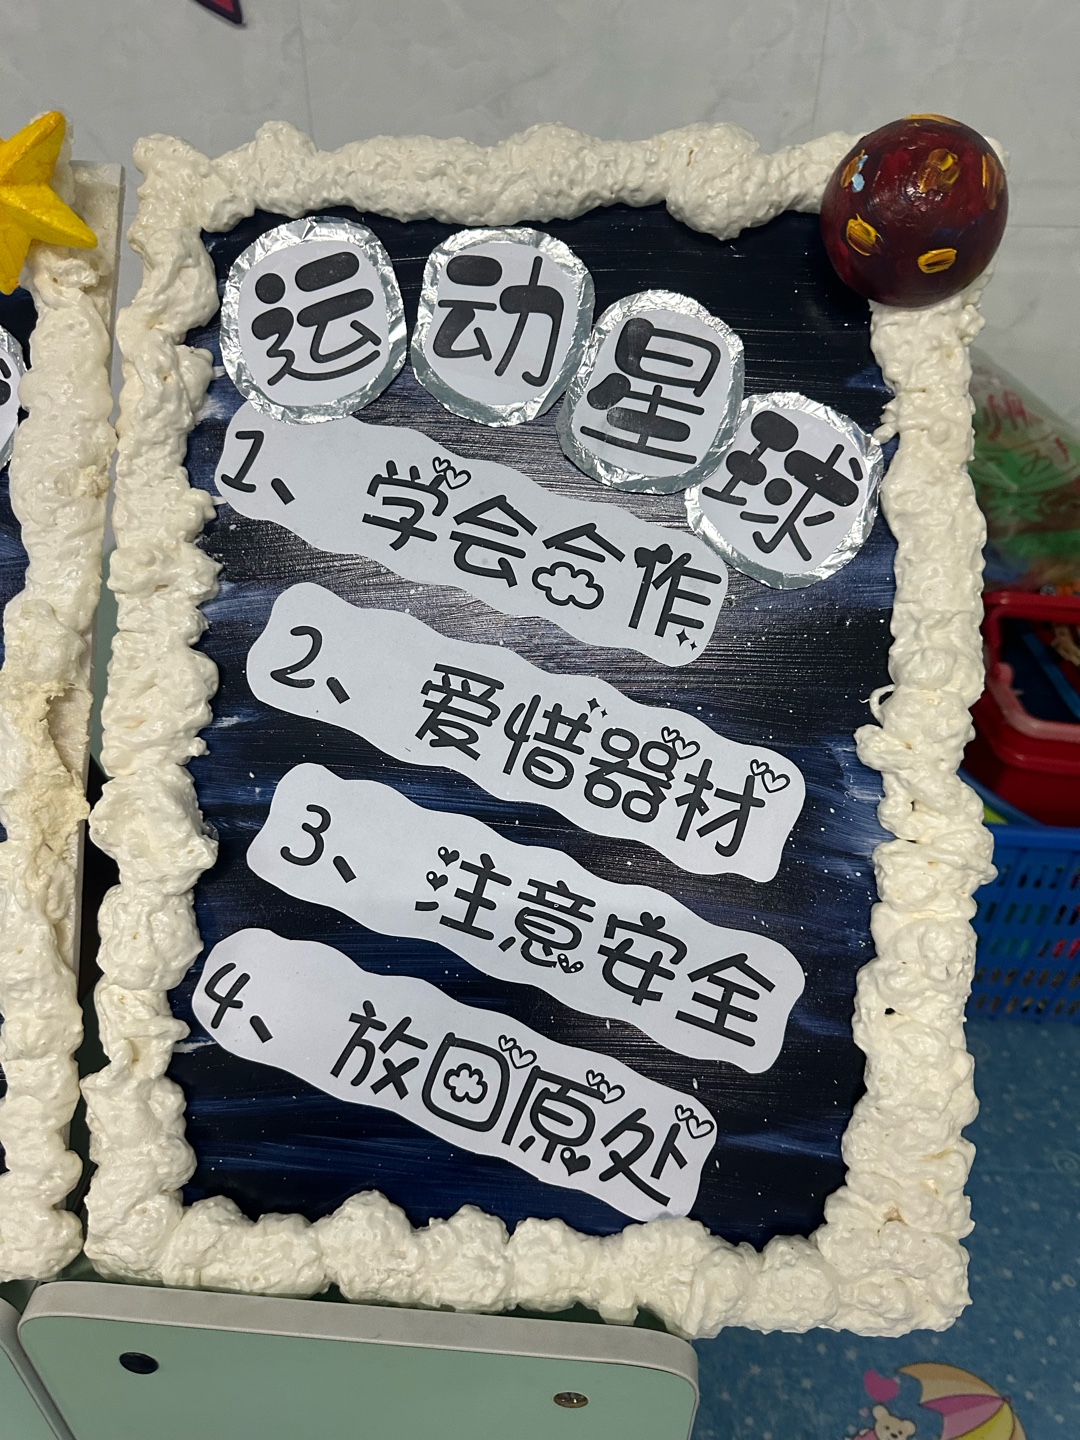 运动星球
1、学会合作
2、爱惜器材
3、注意安全
4、放回原处